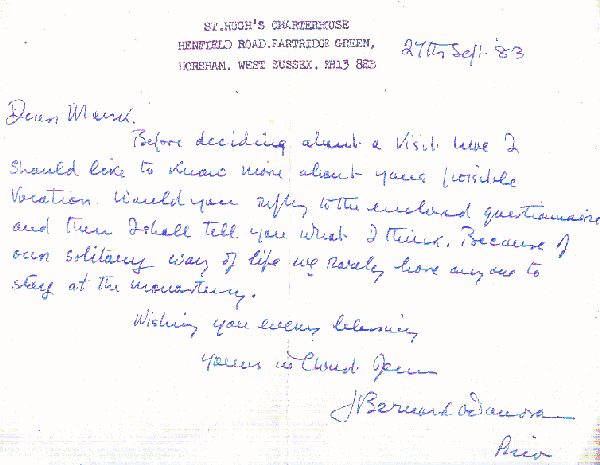 ST.HUGH'S CHARTERHOUSE
HENFIELD ROAD.PARTRIDGE GREEN,
HORSHAM. WEST SUSSEX. RH13 8EB
27th Sept. '83
Dear Mark.
Before deciding about a visit here I
should like to know more about your possible
Vocation. Would you reply to the enclosed questionnaire
and then I shall tell you what I think. Because of
our solitary way of life we rarely have anyone to
stay at the monastery.
Wishing you every blessing
yours in Christ Jesus
Bernard
Prior